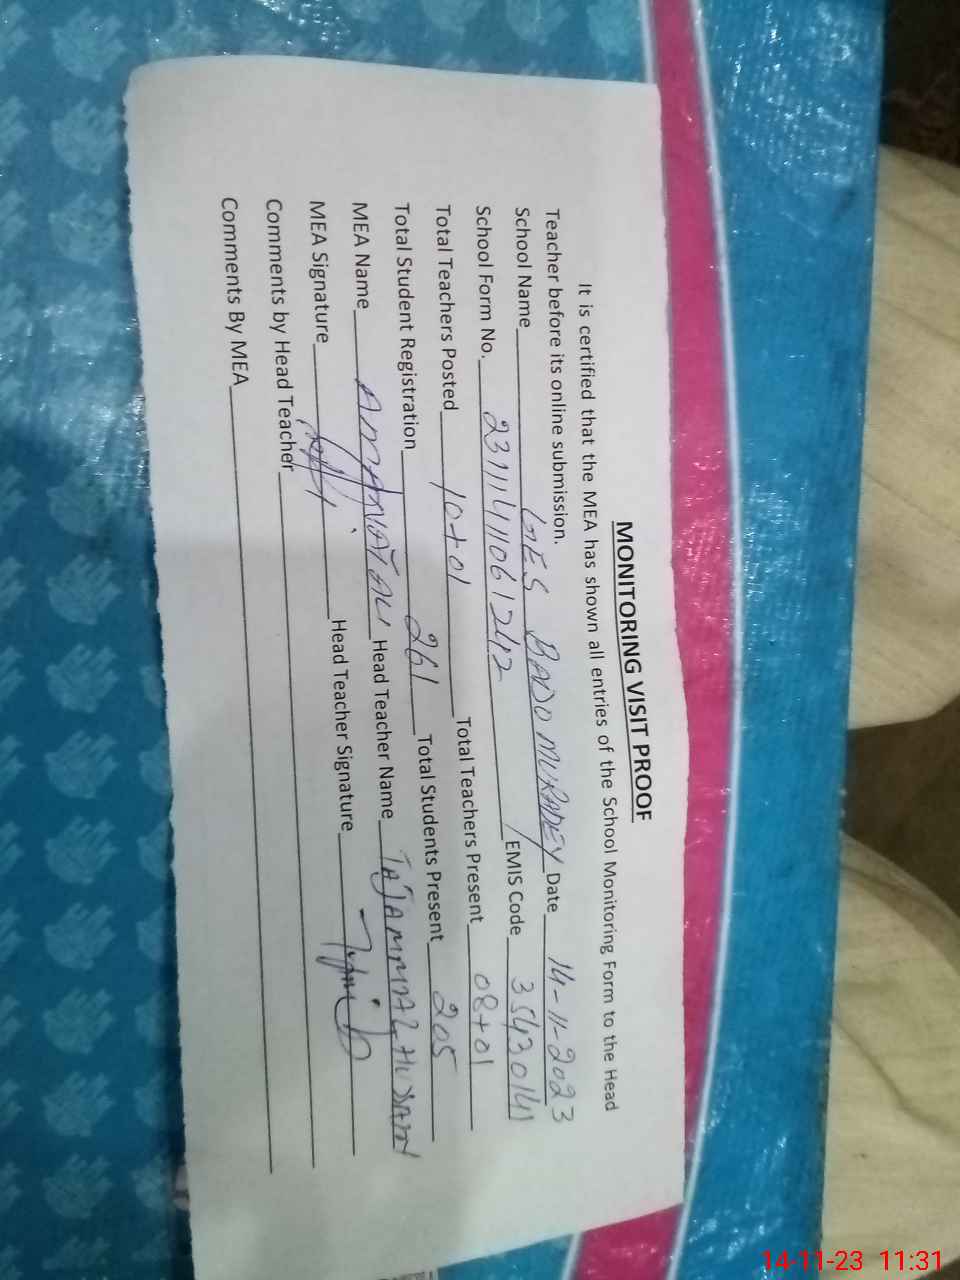 MONITORING VISIT PROOF
It is certified that the MEA has shown all entries of the School Monitoring Form to the Head
Teacher before its online submission.
School Name GES BADO MURADEY Date 14-11-2023
School Form No. 23111411061242 EMIS Code 35430141
Total Teachers Posted 10+01 Total Teachers Present 08+01
Total Student Registration 261 Total Students Present 205
MEA Name AMANAT ALI Head Teacher Name TAJAMMAL HUSAIN
MEA Signature Head Teacher Signature
Comments by Head Teacher
Comments By MEA
14-11-23 11:31